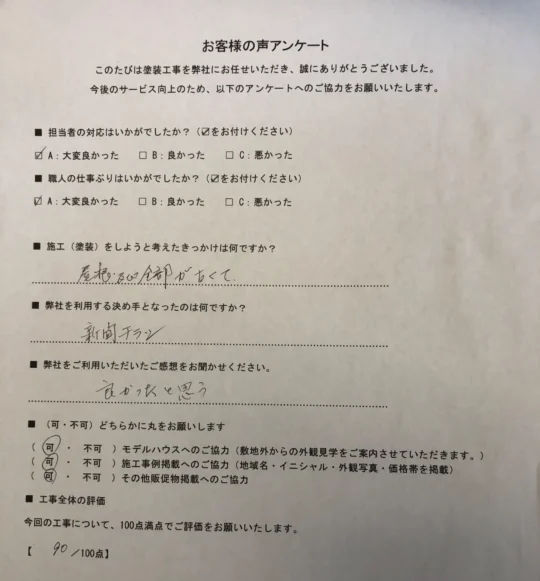 お客様の声アンケート
このたびは塗装工事を弊社にお任せいただき、誠にありがとうございました。
今後のサービス向上のため、以下のアンケートへのご協力をお願いいたします。
■ 担当者の対応はいかがでしたか？（☑をお付けください）
☑ A：大変良かった　□ B：良かった　□ C：悪かった
■ 職人の仕事ぶりはいかがでしたか？（☑をお付けください）
☑ A：大変良かった　□ B：良かった　□ C：悪かった
■ 施工（塗装）をしようと考えたきっかけは何ですか？
屋根及び全部が古くて
■ 弊社を利用する決め手となったのは何ですか？
新聞チラシ
■ 弊社をご利用いただいたご感想をお聞かせください。
良かったと思う
■ （可・不可）どちらかに丸をお願いします
（ 可 ・ 不可 ）モデルハウスへのご協力（敷地外からの外観見学をご案内させていただきます。）
（ 可 ・ 不可 ）施工事例掲載へのご協力（地域名・イニシャル・外観写真・価格帯を掲載）
（ 可 ・ 不可 ）その他販促物掲載へのご協力
■ 工事全体の評価
今回の工事について、100点満点でご評価をお願いいたします。
【 90 /100点】